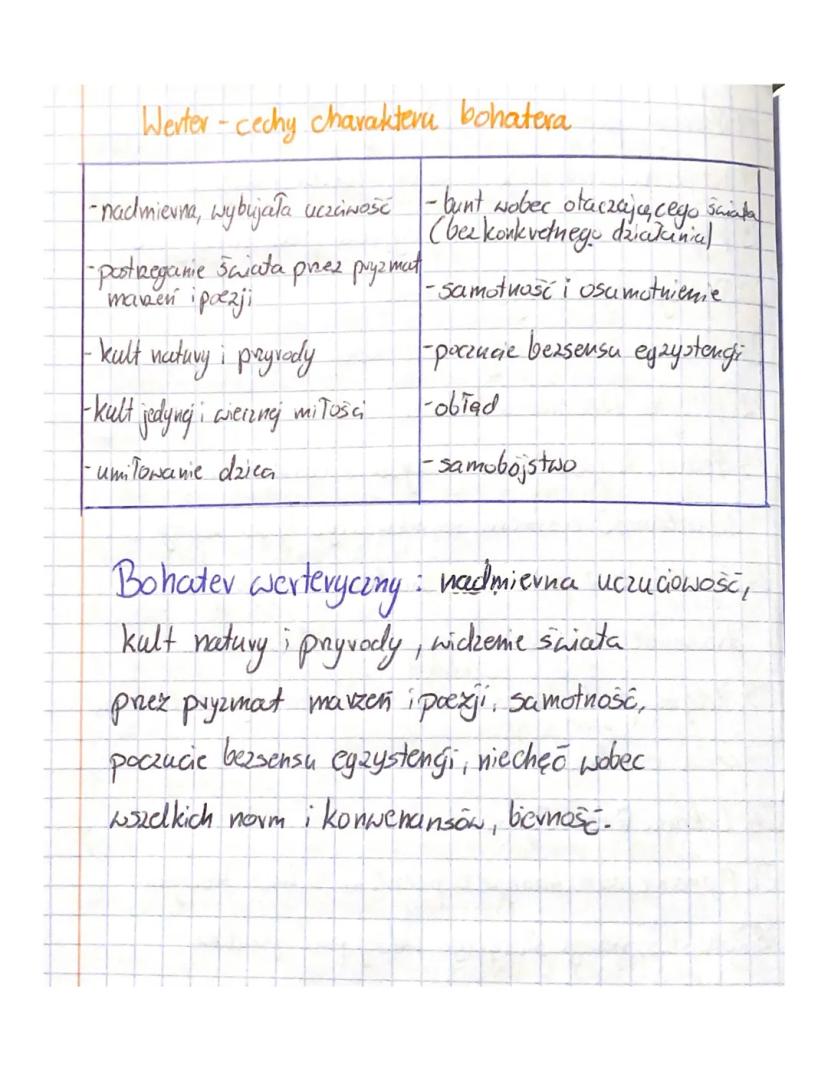 Werter - cechy charakteru bohatera
- nadmierna, wybujała uczciwość
- postrzeganie świata przez pryzmat
marzeń i poezji
- kult natury i przyrody
- kult jedynej i wiecznej miłości
- umiłowanie dzieci
- bunt wobec otaczającego świata
(bez konkretnego działania)
- samotność i osamotnienie
- poczucie bezsensu egzystencji
- obłęd
- samobójstwo
Bohater werteryczny: nadmierna uczuciowość,
kult natury i przyrody, widzenie świata
przez pryzmat marzeń i poezji, samotność,
poczucie bezsensu egzystencji, niechęć wobec
wszelkich norm i konwenansów, bierność.